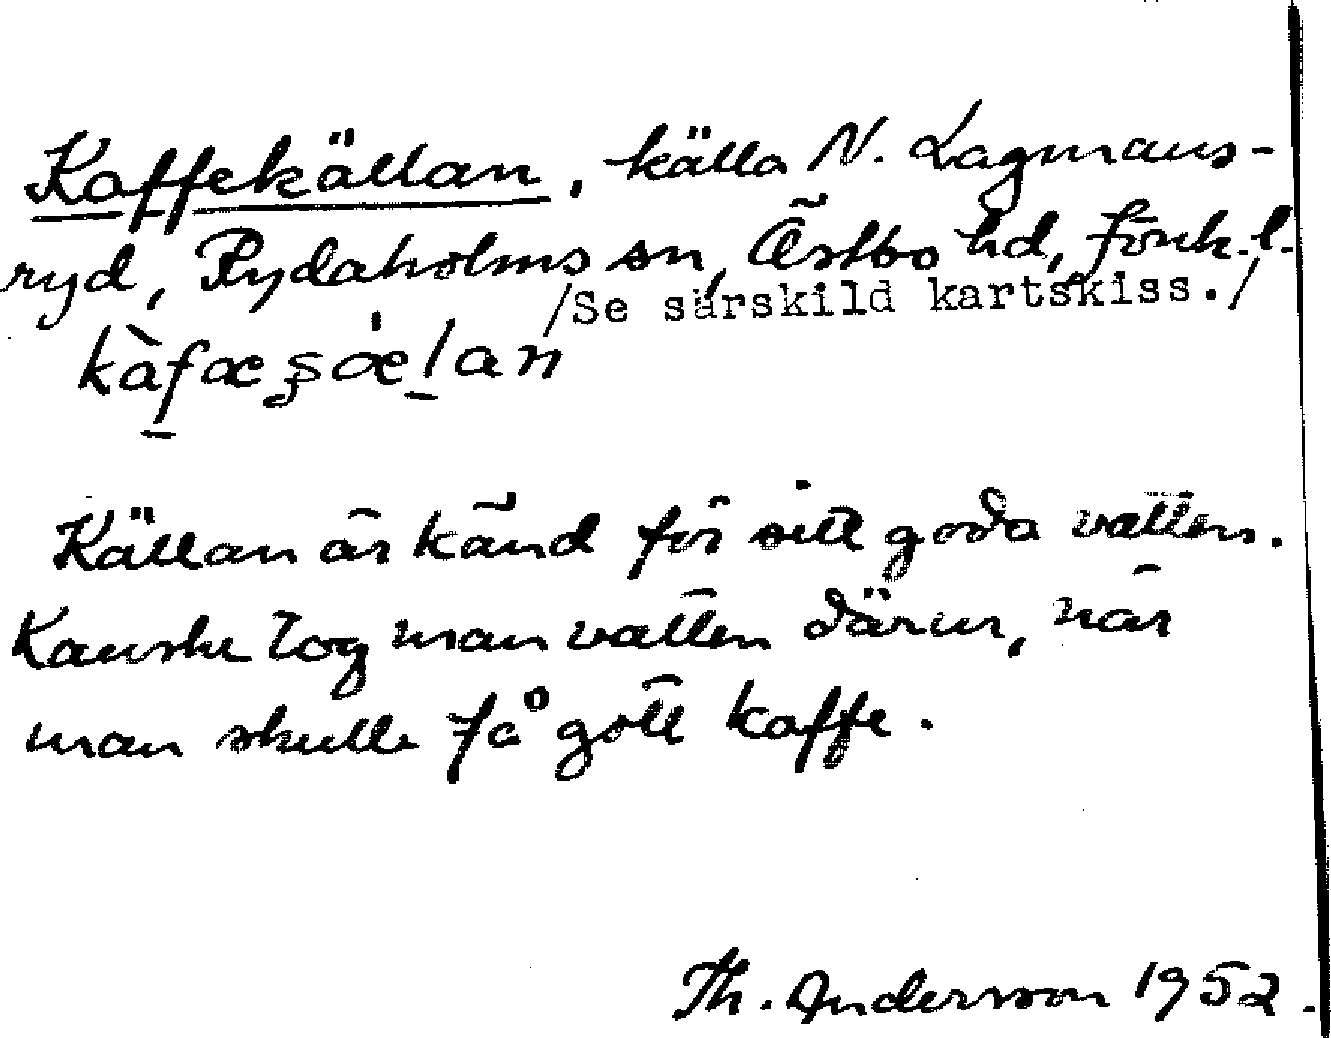 Kaffekällan, källa N. Lagmans-
ryd, Rydaholms sn, Östbo hd, Jönk. l.
/Se särskild kartskiss./
kàfæşæ̍lan
Källan är känd för sitt goda vatten.
Kanske tog man vatten därur, när
man skulle få gott kaffe.
Th. Andersson 1952.